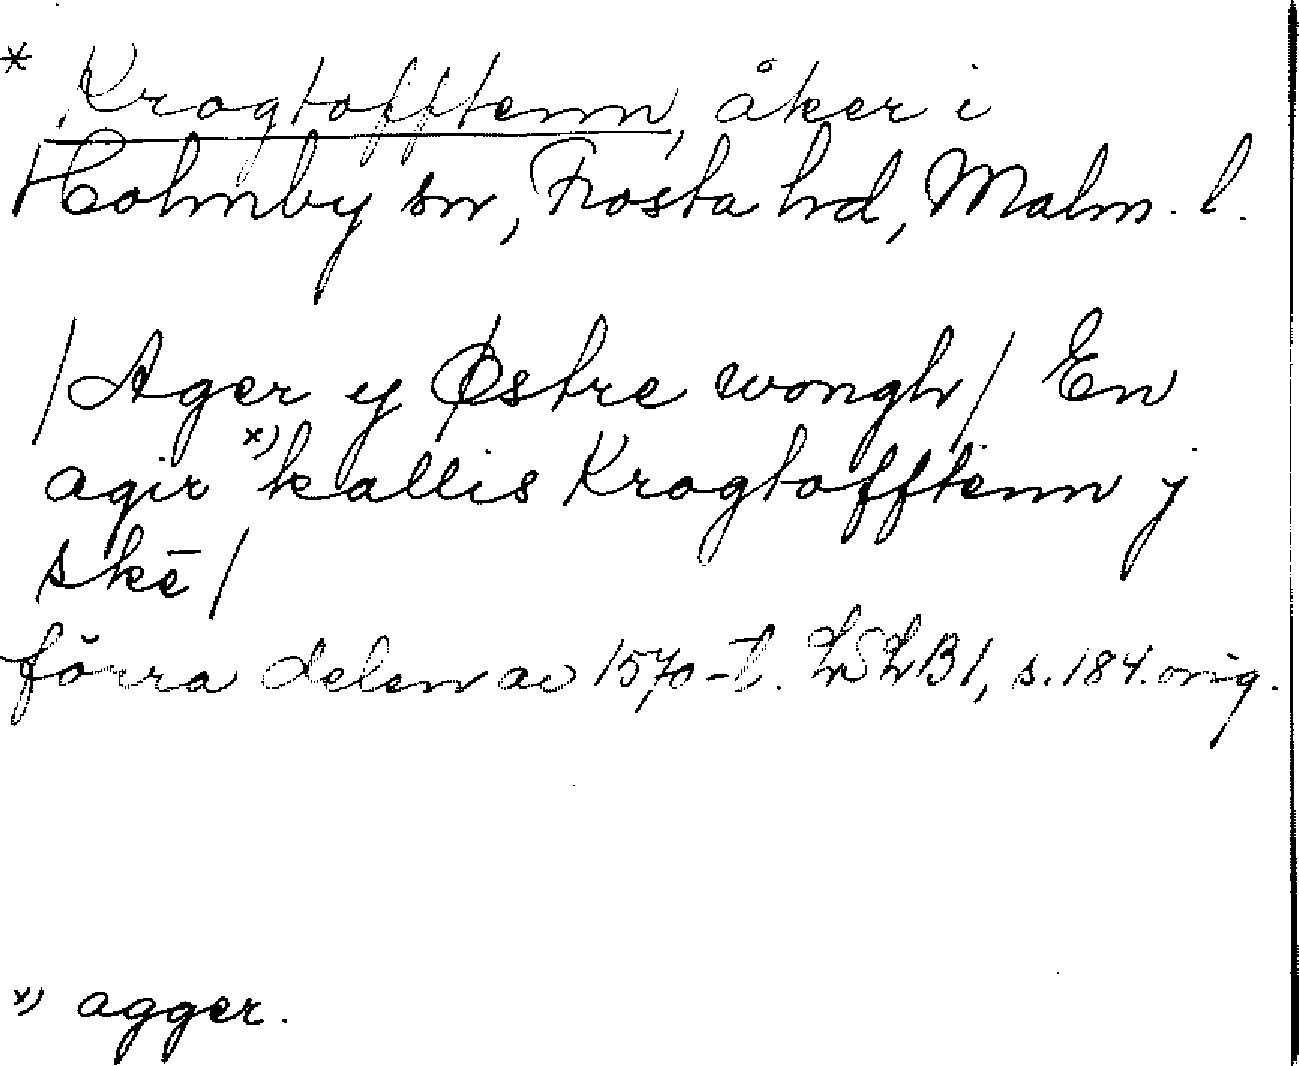 * Krogtofftenn, åker i
Holmby sn, Frosta hd, Malm. l.
/Ager y Østre wongh/ En
agir x) kallis Krogtofftenn j
skē/
förra delen av 1570-t. LSLB1, s. 184. orig.
x) agger.